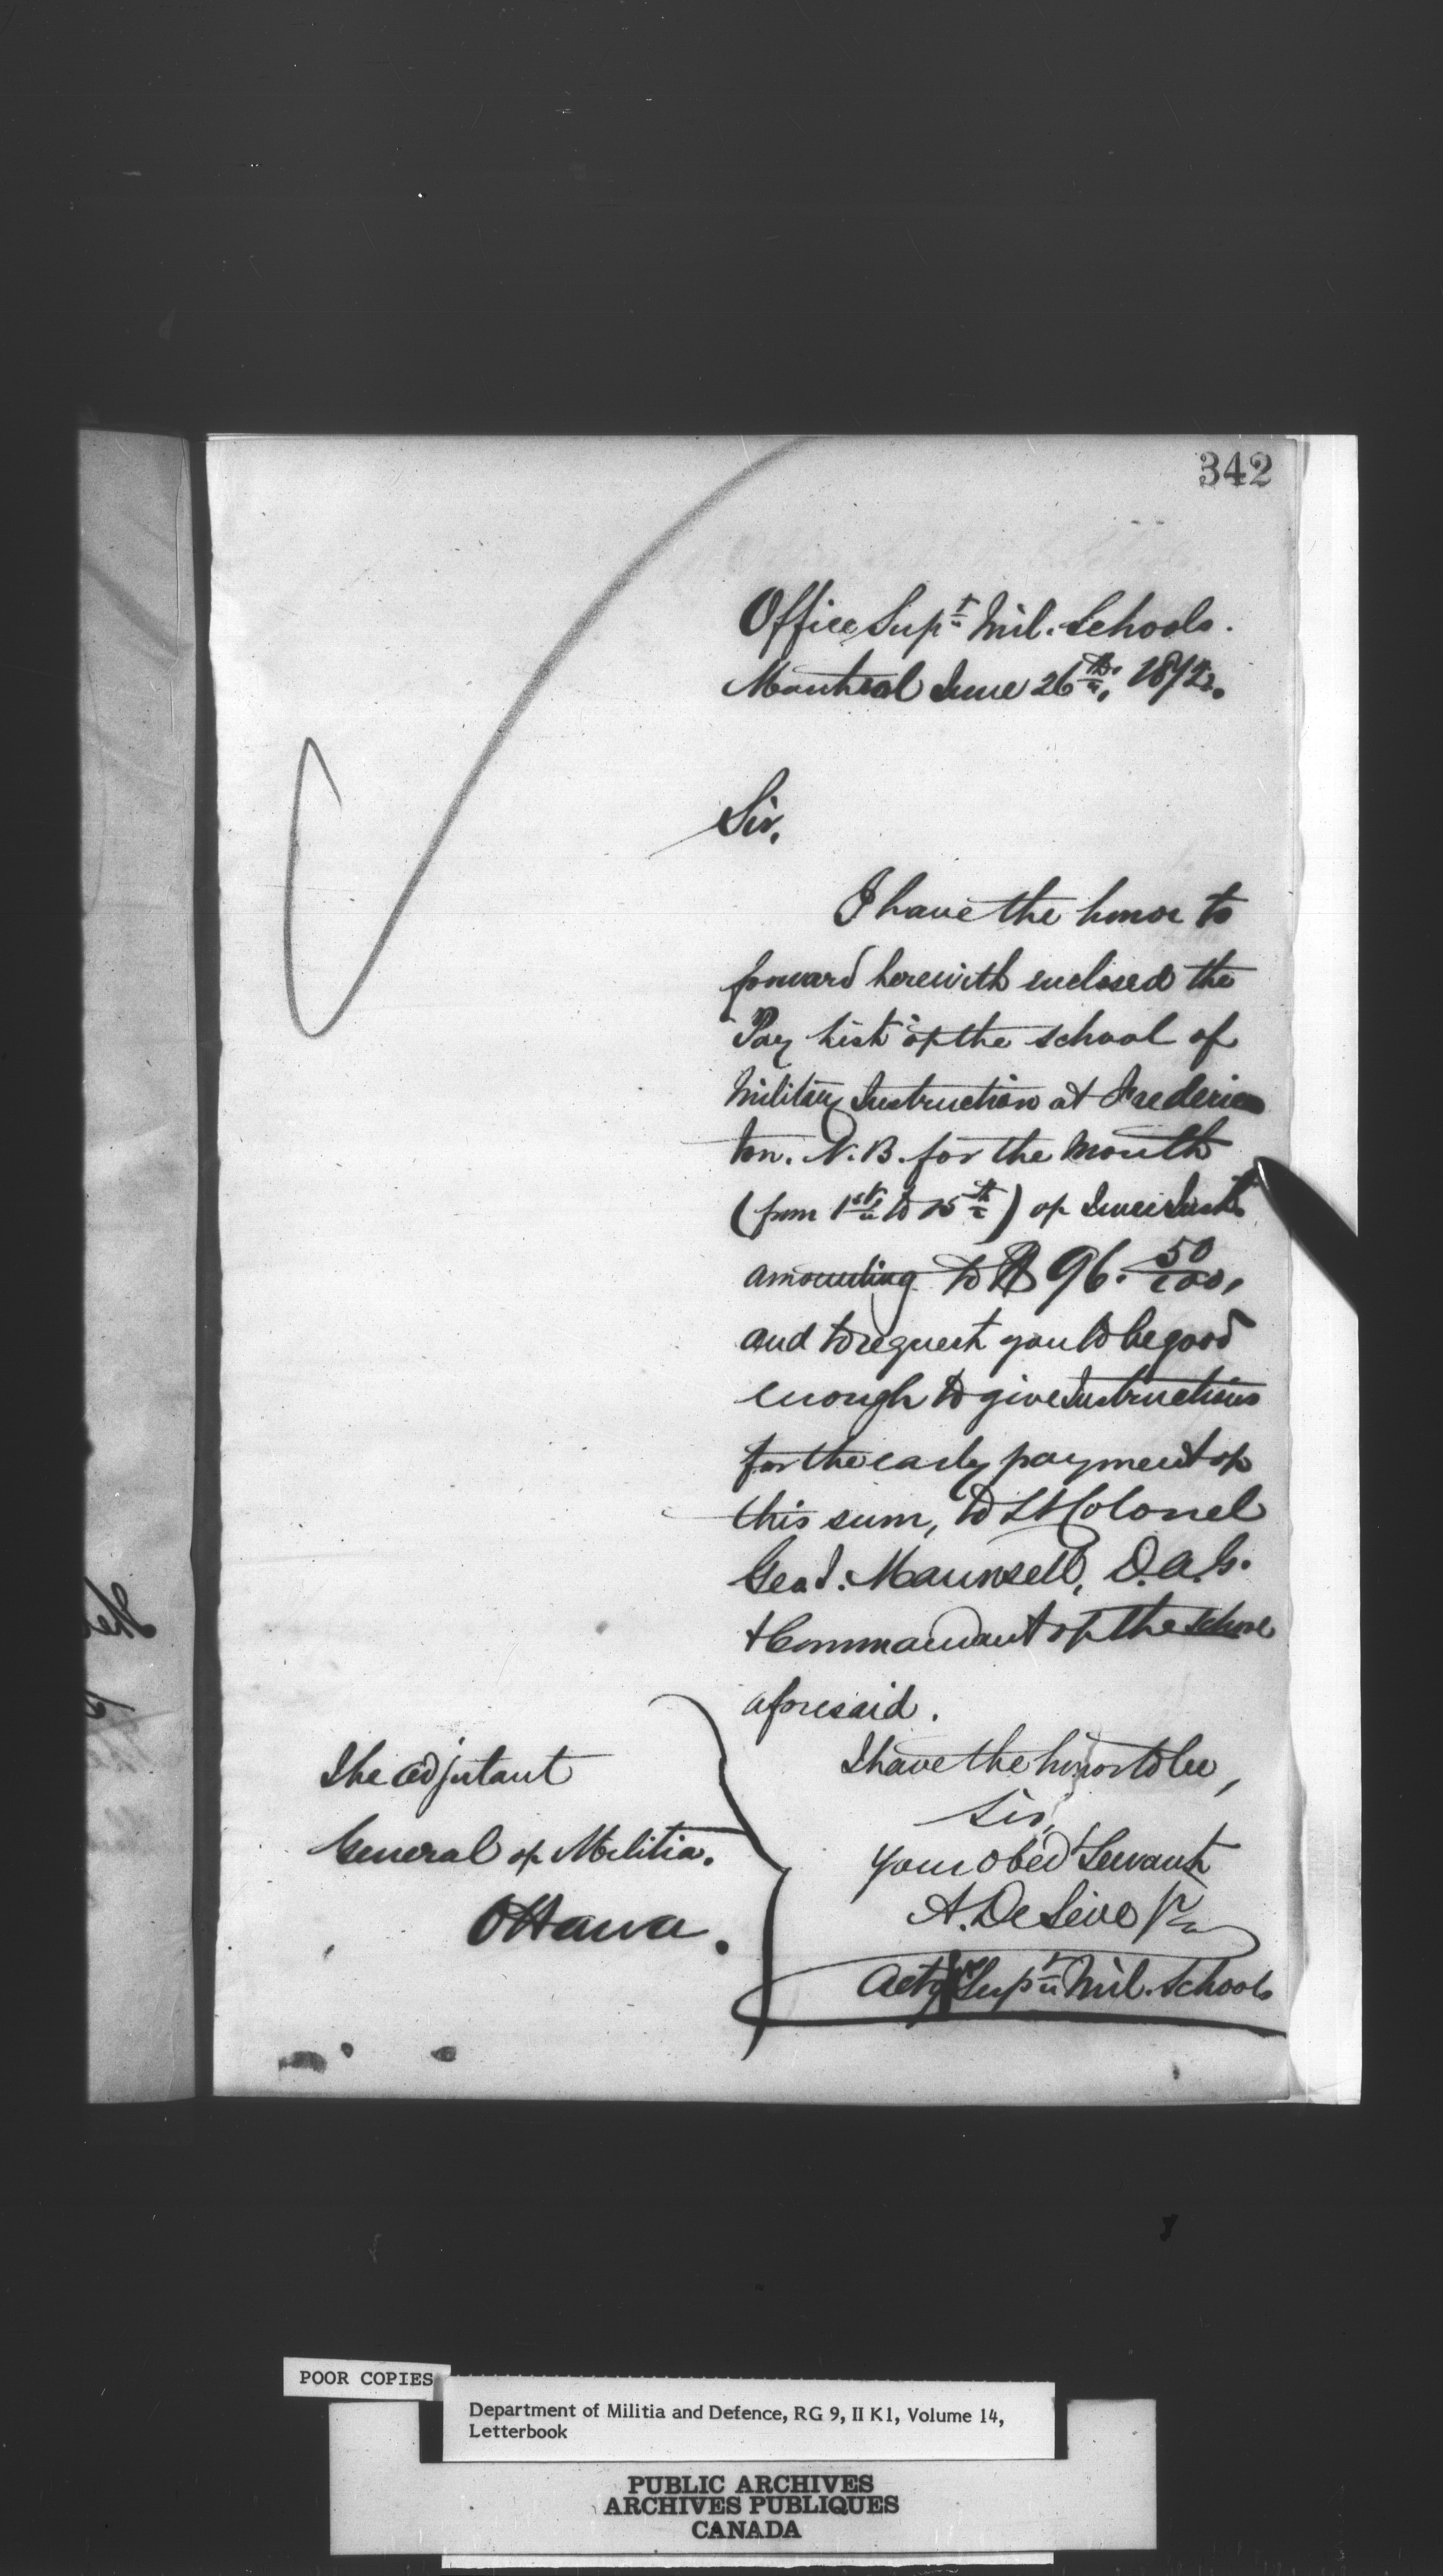 342
Office Supt Mil. Schools.
Montreal June 26th, 1872.
Sir,
I have the honor to
forward herewith enclosed the
"Pay list" of the school of
Military Instruction at Frederic
ton. N.B. for the month
(from 1st to 15th) of June inst.
amounting to $ 96. 50/100,
and to request you to be good
enough to give Instructions
for the early payment of
this sum, to Lt Colonel
Geo. J. Maunsell, D.A.G.
& Commandant of the school
aforesaid.
I have the honor to be,
Sir,
your obed Servant
A. De Seve
Actg Supt Mil. Schools
The Adjutant
General of Militia.
Ottawa.
POOR COPIES
Department of Militia and Defence, RG 9, II K1, Volume 14,
Letterbook
PUBLIC ARCHIVES
ARCHIVES PUBLIQUES
CANADA